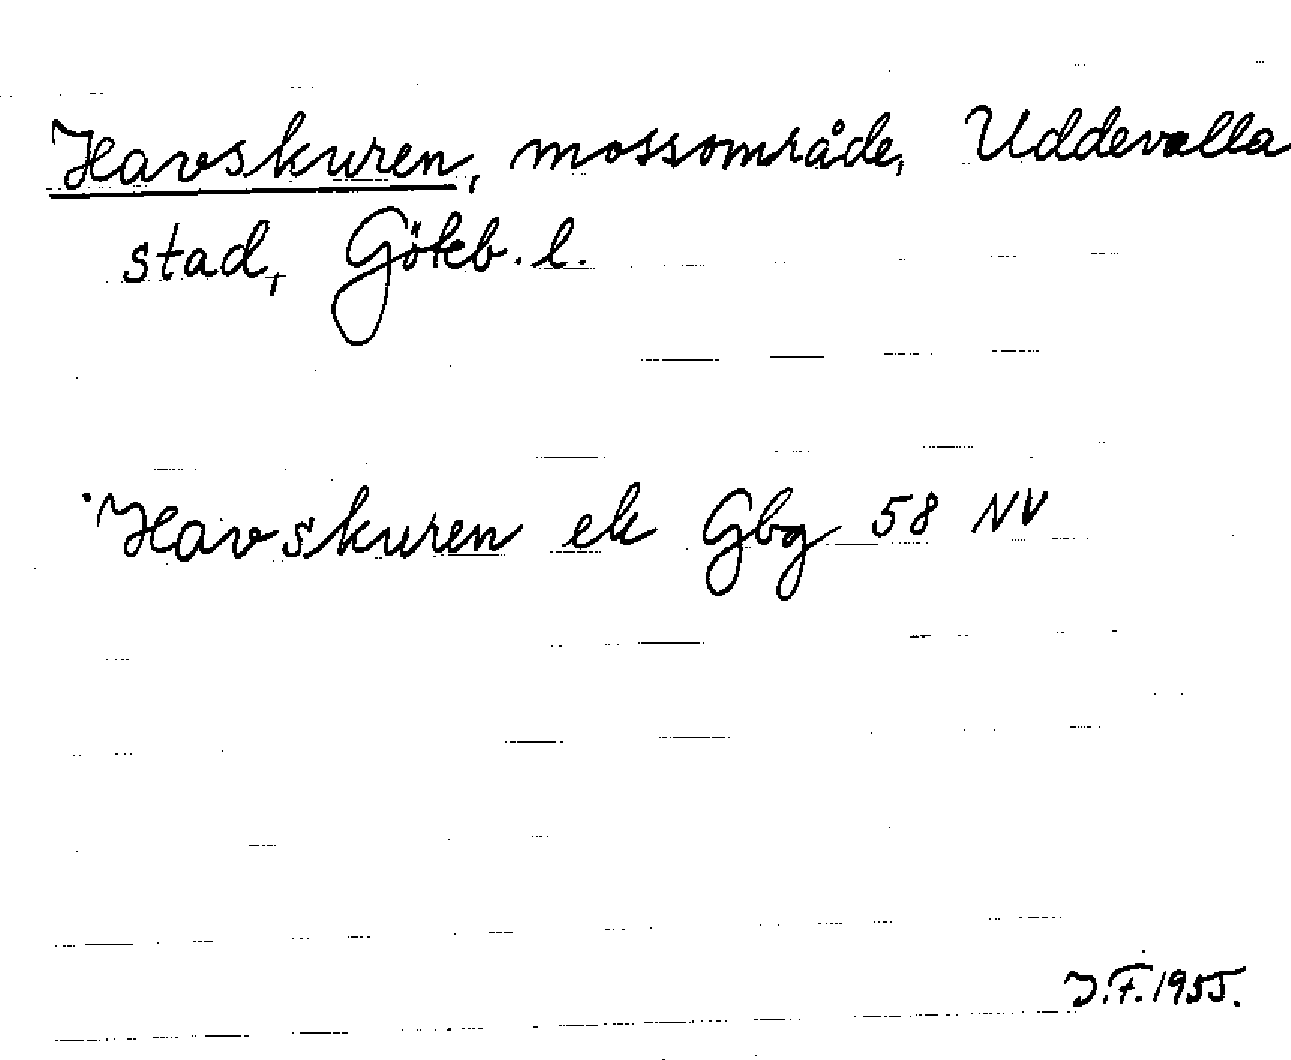 Havskuren, mossområde, Uddevalla
stad, Göteb. l.
Havskuren ek Gbg 58 NV
J.F. 1955.